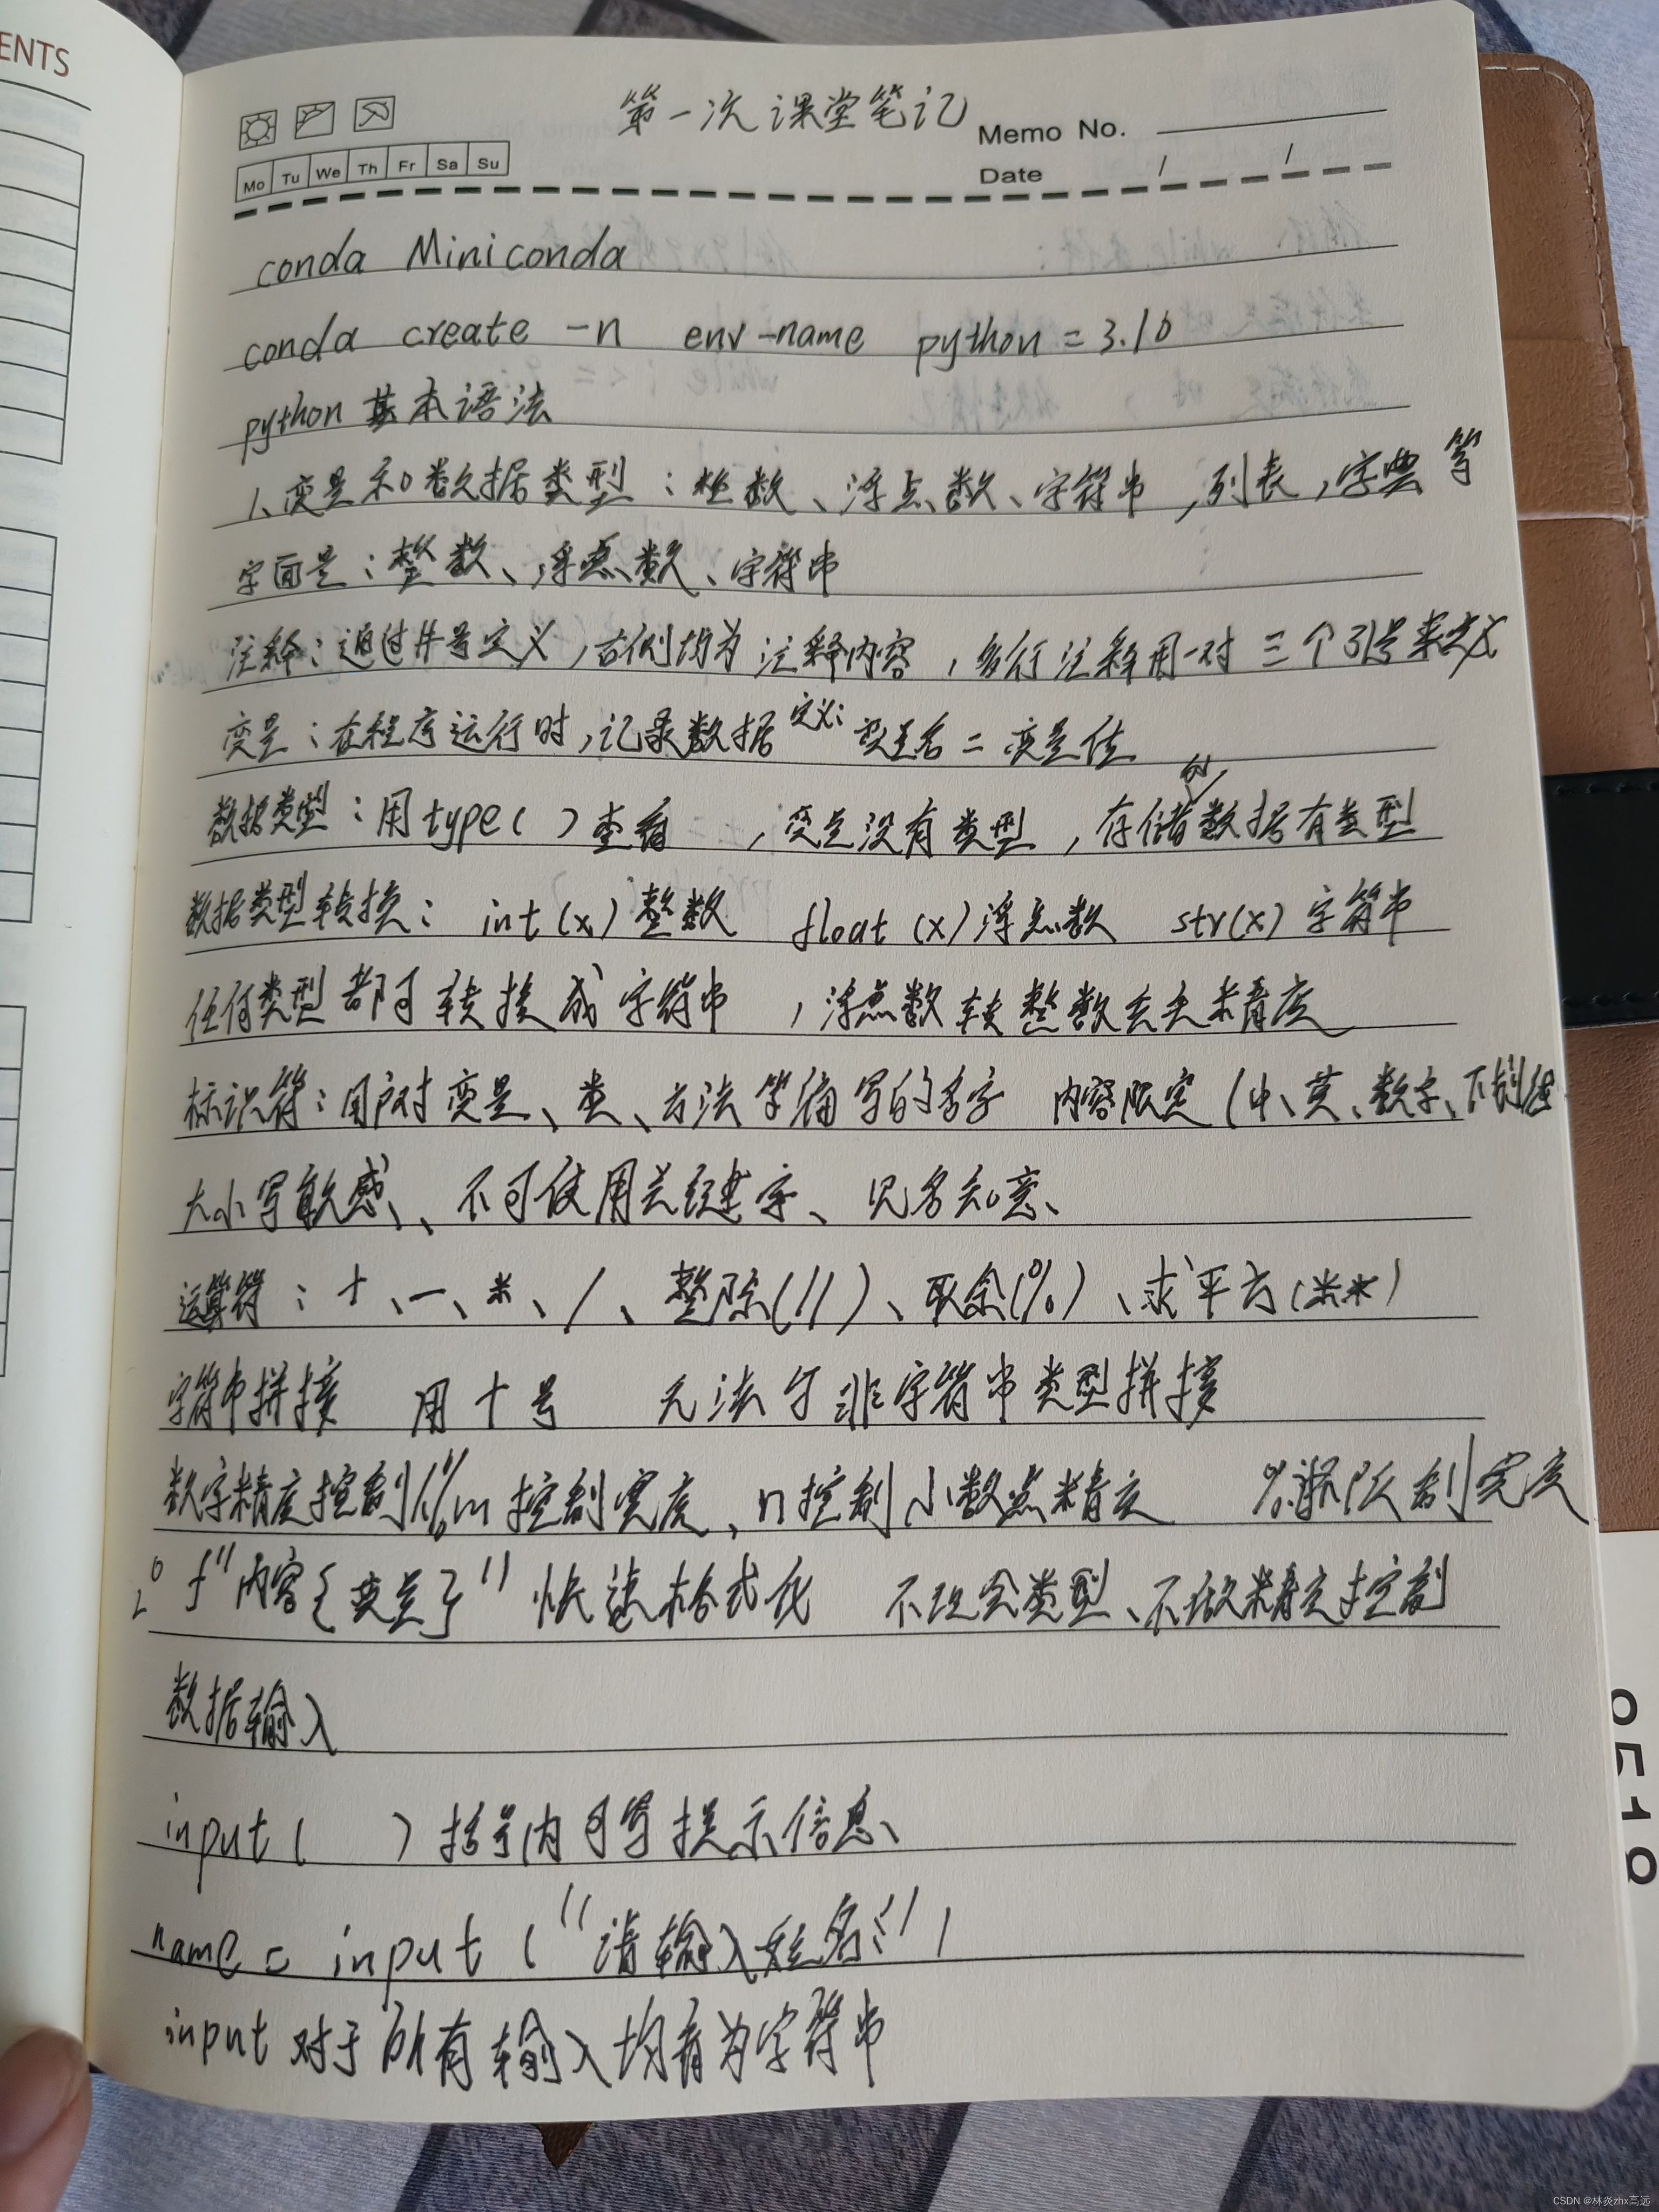 ENTS
第一次课堂笔记
Memo No.
Mo Tu We Th Fr Sa Su
Date / /
conda Miniconda
conda create -n env-name python=3.10
python 基本语法
1、变量和数据类型：整数、浮点数、字符串，列表，字典等
字面量：整数、浮点数、字符串
注释：通过井号定义，右侧均为注释内容，多行注释用一对三个引号来定义
变量：在程序运行时，记录数据 定义：变量名=变量值
数据类型：用type( )查看，变量没有类型，存储的数据有类型
数据类型转换：int(x)整数 float(x)浮点数 str(x)字符串
任何类型都可转换成字符串，浮点数转整数丢失精度
标识符：用户对变量、类、方法等编写的名字 内容限定(中、英、数字、下划线
大小写敏感、不可使用关键字、见名知意、
运算符：+、-、*、/、整除(//)、取余(%)、求平方(**)
字符串拼接 用+号 无法与非字符串类型拼接
数字精度控制 m控制宽度、n控制小数点精度 限制宽度
f"内容{变量}" 快速格式化 不理会类型、不做精度控制
数据输入
input( )括号内可写提示信息、
name = input("请输入姓名:")
input对于所有输入均看为字符串
0518
CSDN @林炎zhx高远